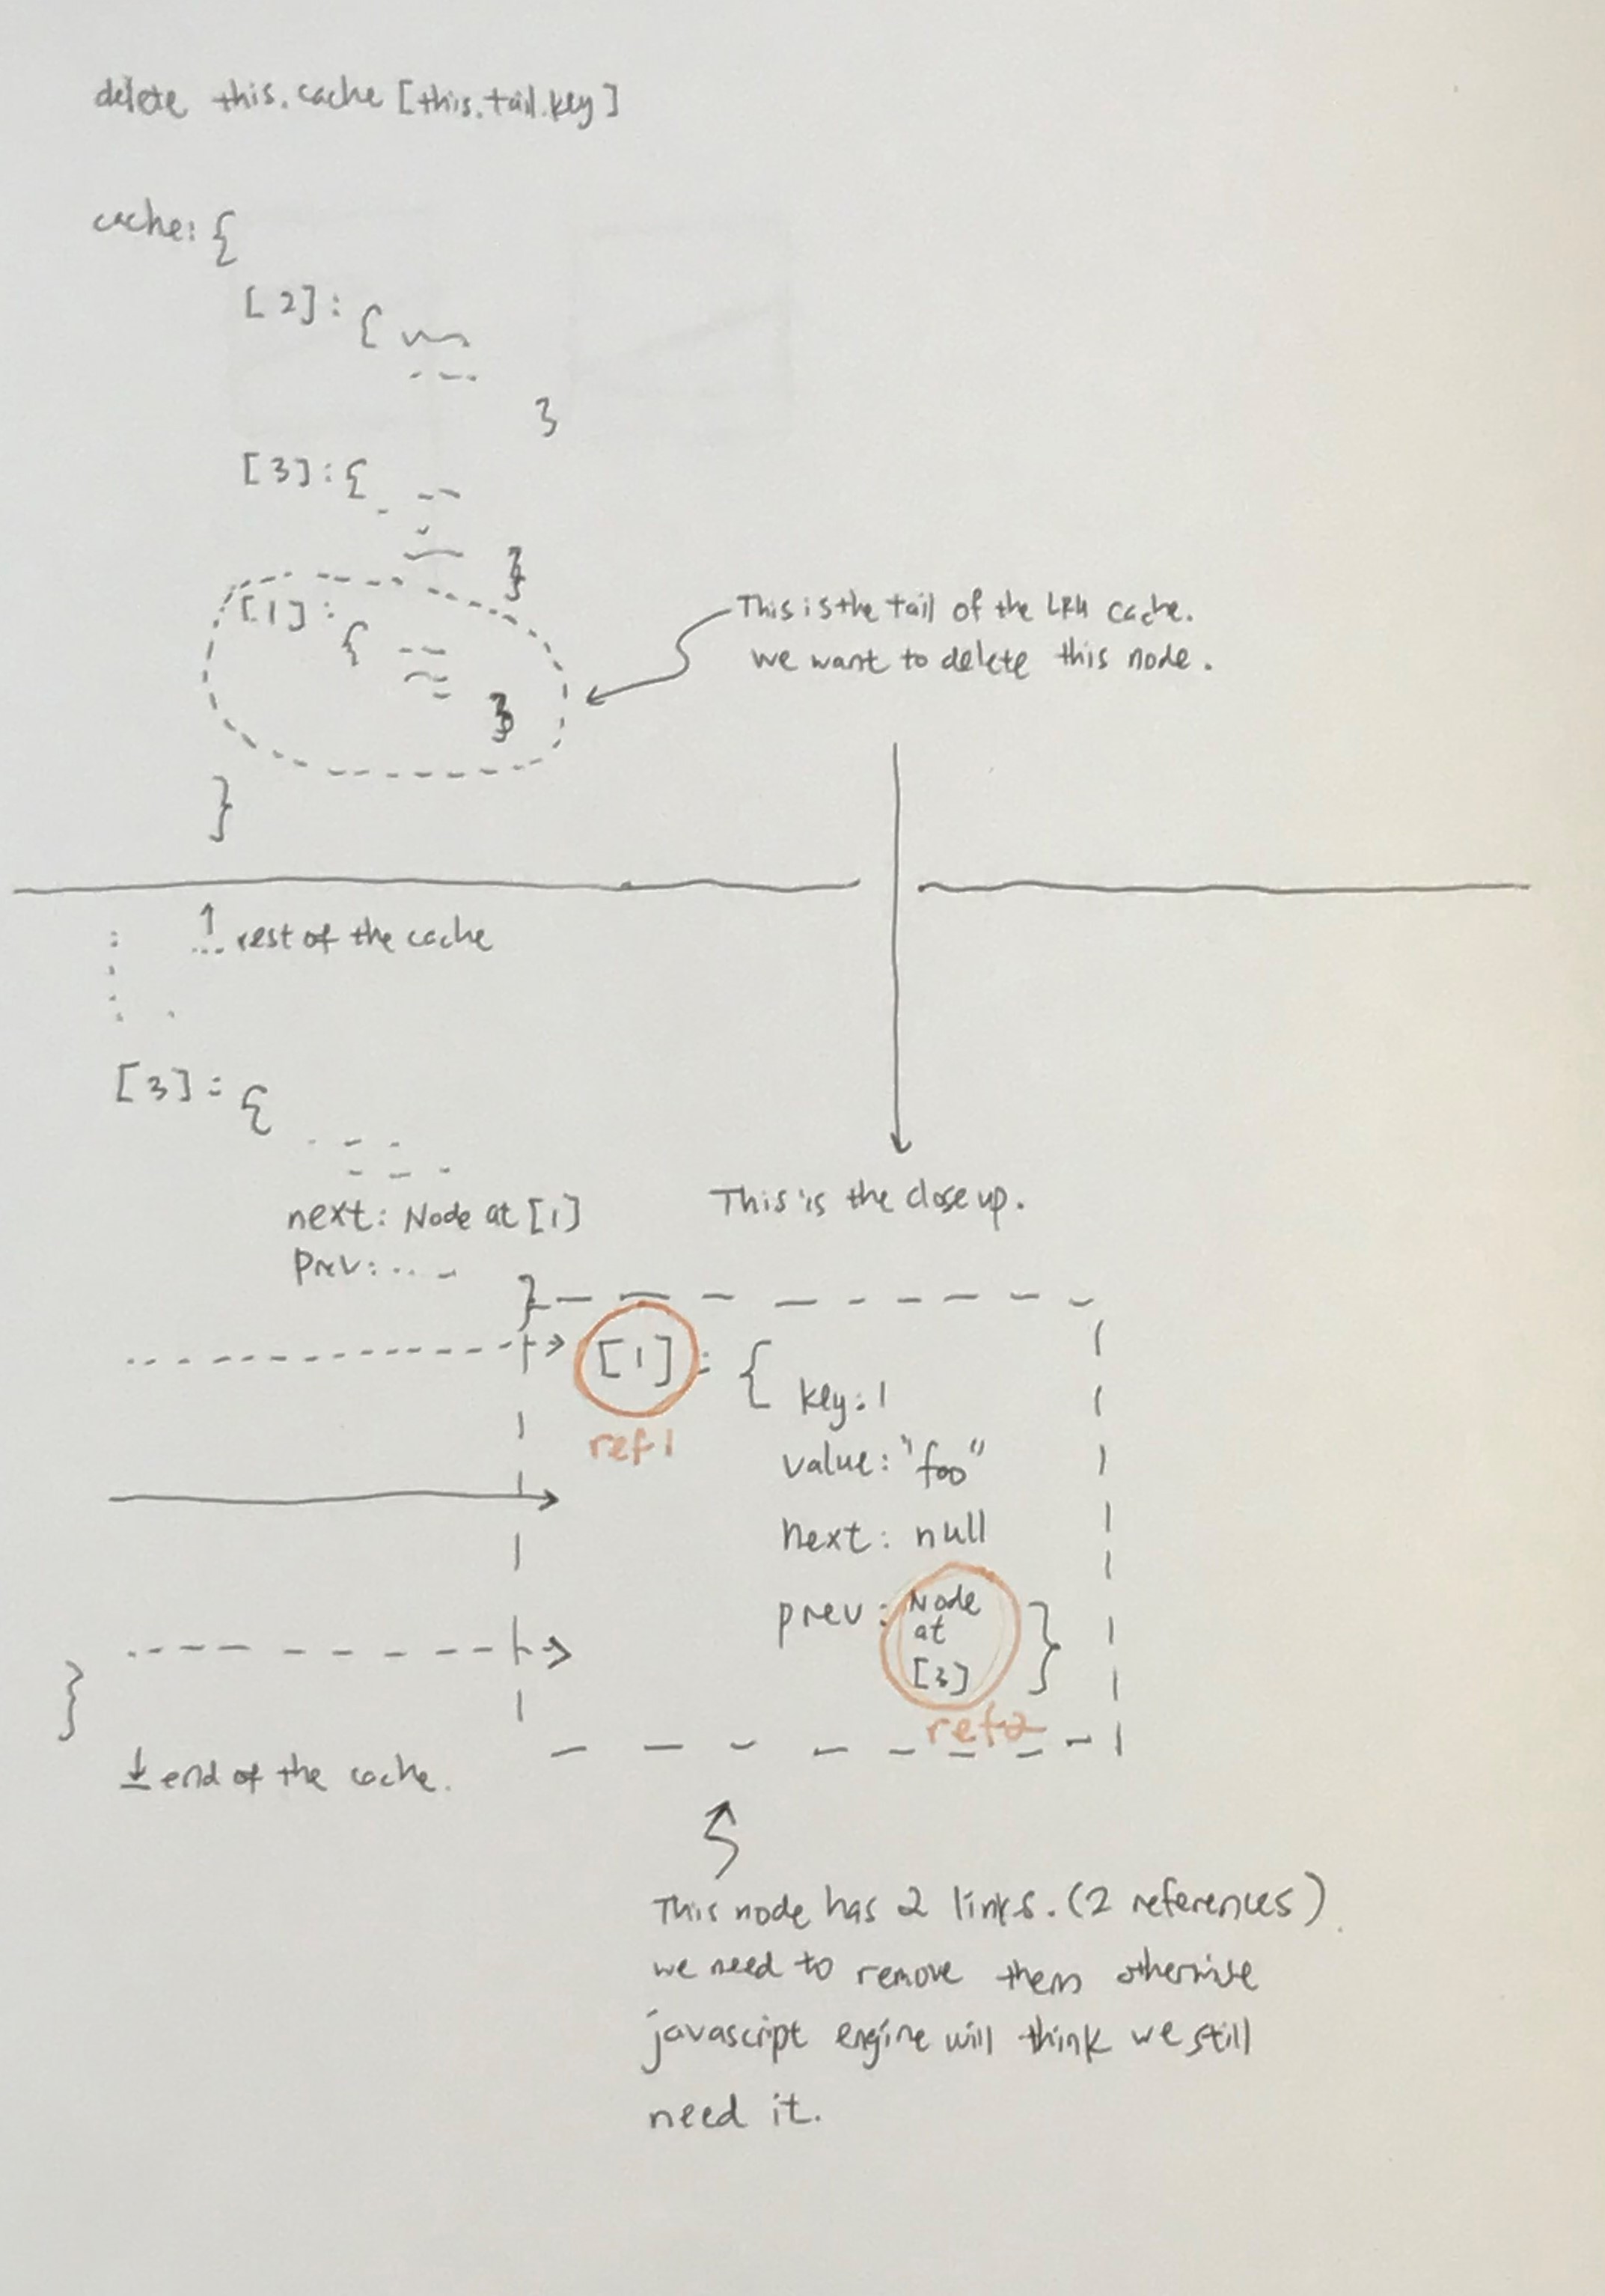 delete this.cache [this.tail.key]
cache: {
[2]: {
}
[3]: {
}
[1]: {
}
}
This is the tail of the LRU cache.
we want to delete this node.
... rest of the cache
[3]: {
next: Node at [1]
prev: ...
}
This is the close up.
[1]: {
ref1
key: 1
value: "foo"
next: null
prev: Node
at
[3] }
ref2
}
end of the cache.
This node has 2 links. (2 references)
we need to remove them otherwise
javascript engine will think we still
need it.